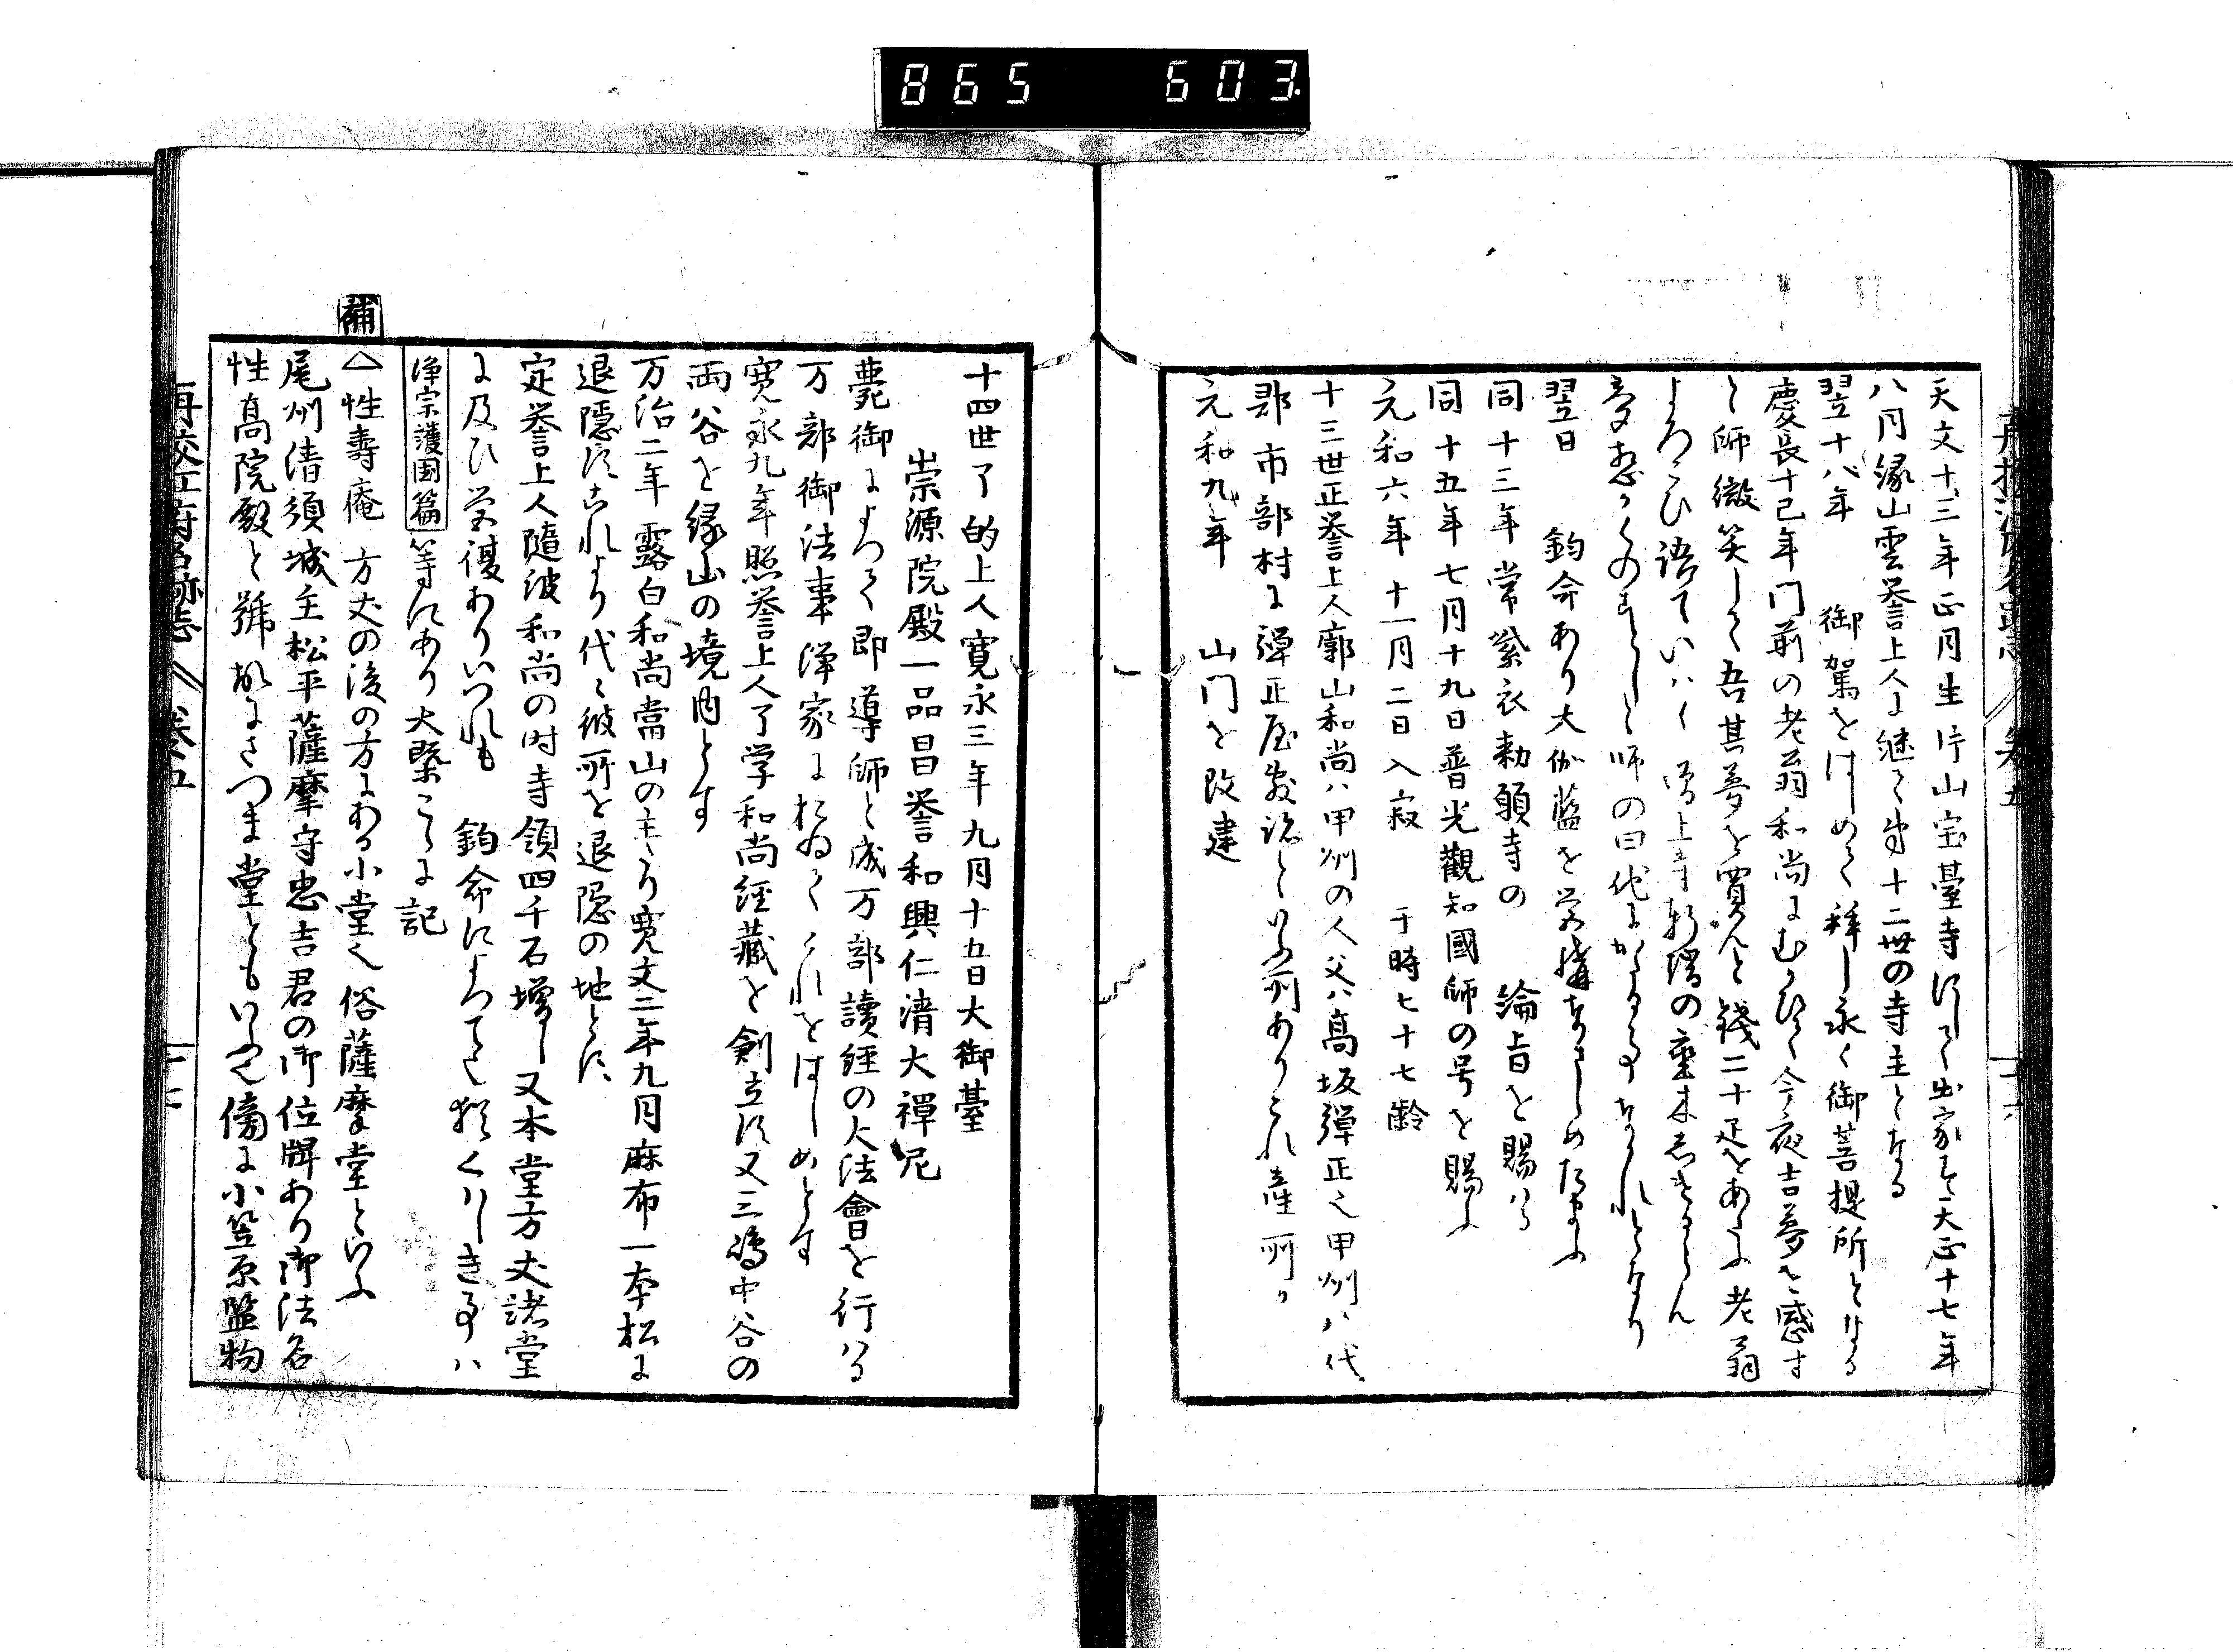 865 603
天文十三年正月生片山宝臺寺にして出家す天正十七年
八月縁山雲誉上人に継て第十二世の寺主となる
翌十八年　御駕をはしめて拝し永く御菩提所となる
慶長十己年門前の老翁和尚にむかひて今夜吉夢を感す
と師微笑して吾其夢を買んと銭二十疋をあたふ老翁
よろこひ語ていハく増上寺
師の曰
翌日　鈞命あり大伽藍を営構なさしめたまふ
同十三年常紫衣勅願寺の　綸旨を賜ハる
同十五年七月十九日普光觀知國師の号を賜ふ
元和六年十一月二日入寂　于時七十七齢
十三世正誉上人廓山和尚ハ甲州の人父ハ高坂弾正之甲州八代
郡市部村に弾正屋敷跡といふ所ありこれ産所か
元和九年　山門を改建
十四世了的上人寛永三年九月十五日大御臺
崇源院殿一品昌誉和興仁清大禪尼
薨御によつて即導師と成万部讀經の大法會を行ハる
万部御法事浄家におゐてこれをはしめとす
寛永九年照誉上人了学和尚經藏を創立す又三嶋中谷の
両谷を縁山の境内とす
万治二年露白和尚當山の主たり寛文二年九月麻布一本松に
退隠すこれより代々彼所を退隠の地とす
定誉上人隨波和尚の时寺領四千石増し又本堂方丈諸堂
に及ひ営復ありいつれも　鈞命によつてた猶くハしき事ハ
浄宗護國篇等にあり大槩こゝに記
補
△性壽庵　方丈の後の方にある小堂也俗薩摩堂といふ
尾州清須城主松平薩摩守忠吉君の御位牌あり御法名
性高院殿と号故にさつま堂ともいへり傍に小笠原監物
再校江府名跡志　巻五　十六
再校江府名跡志　巻五　十七